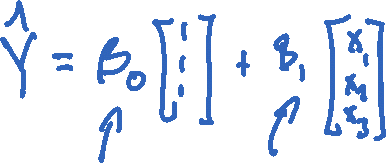 Ŷ = β₀ [1 1 1] + β₁ [x₁ x₂ x₃]